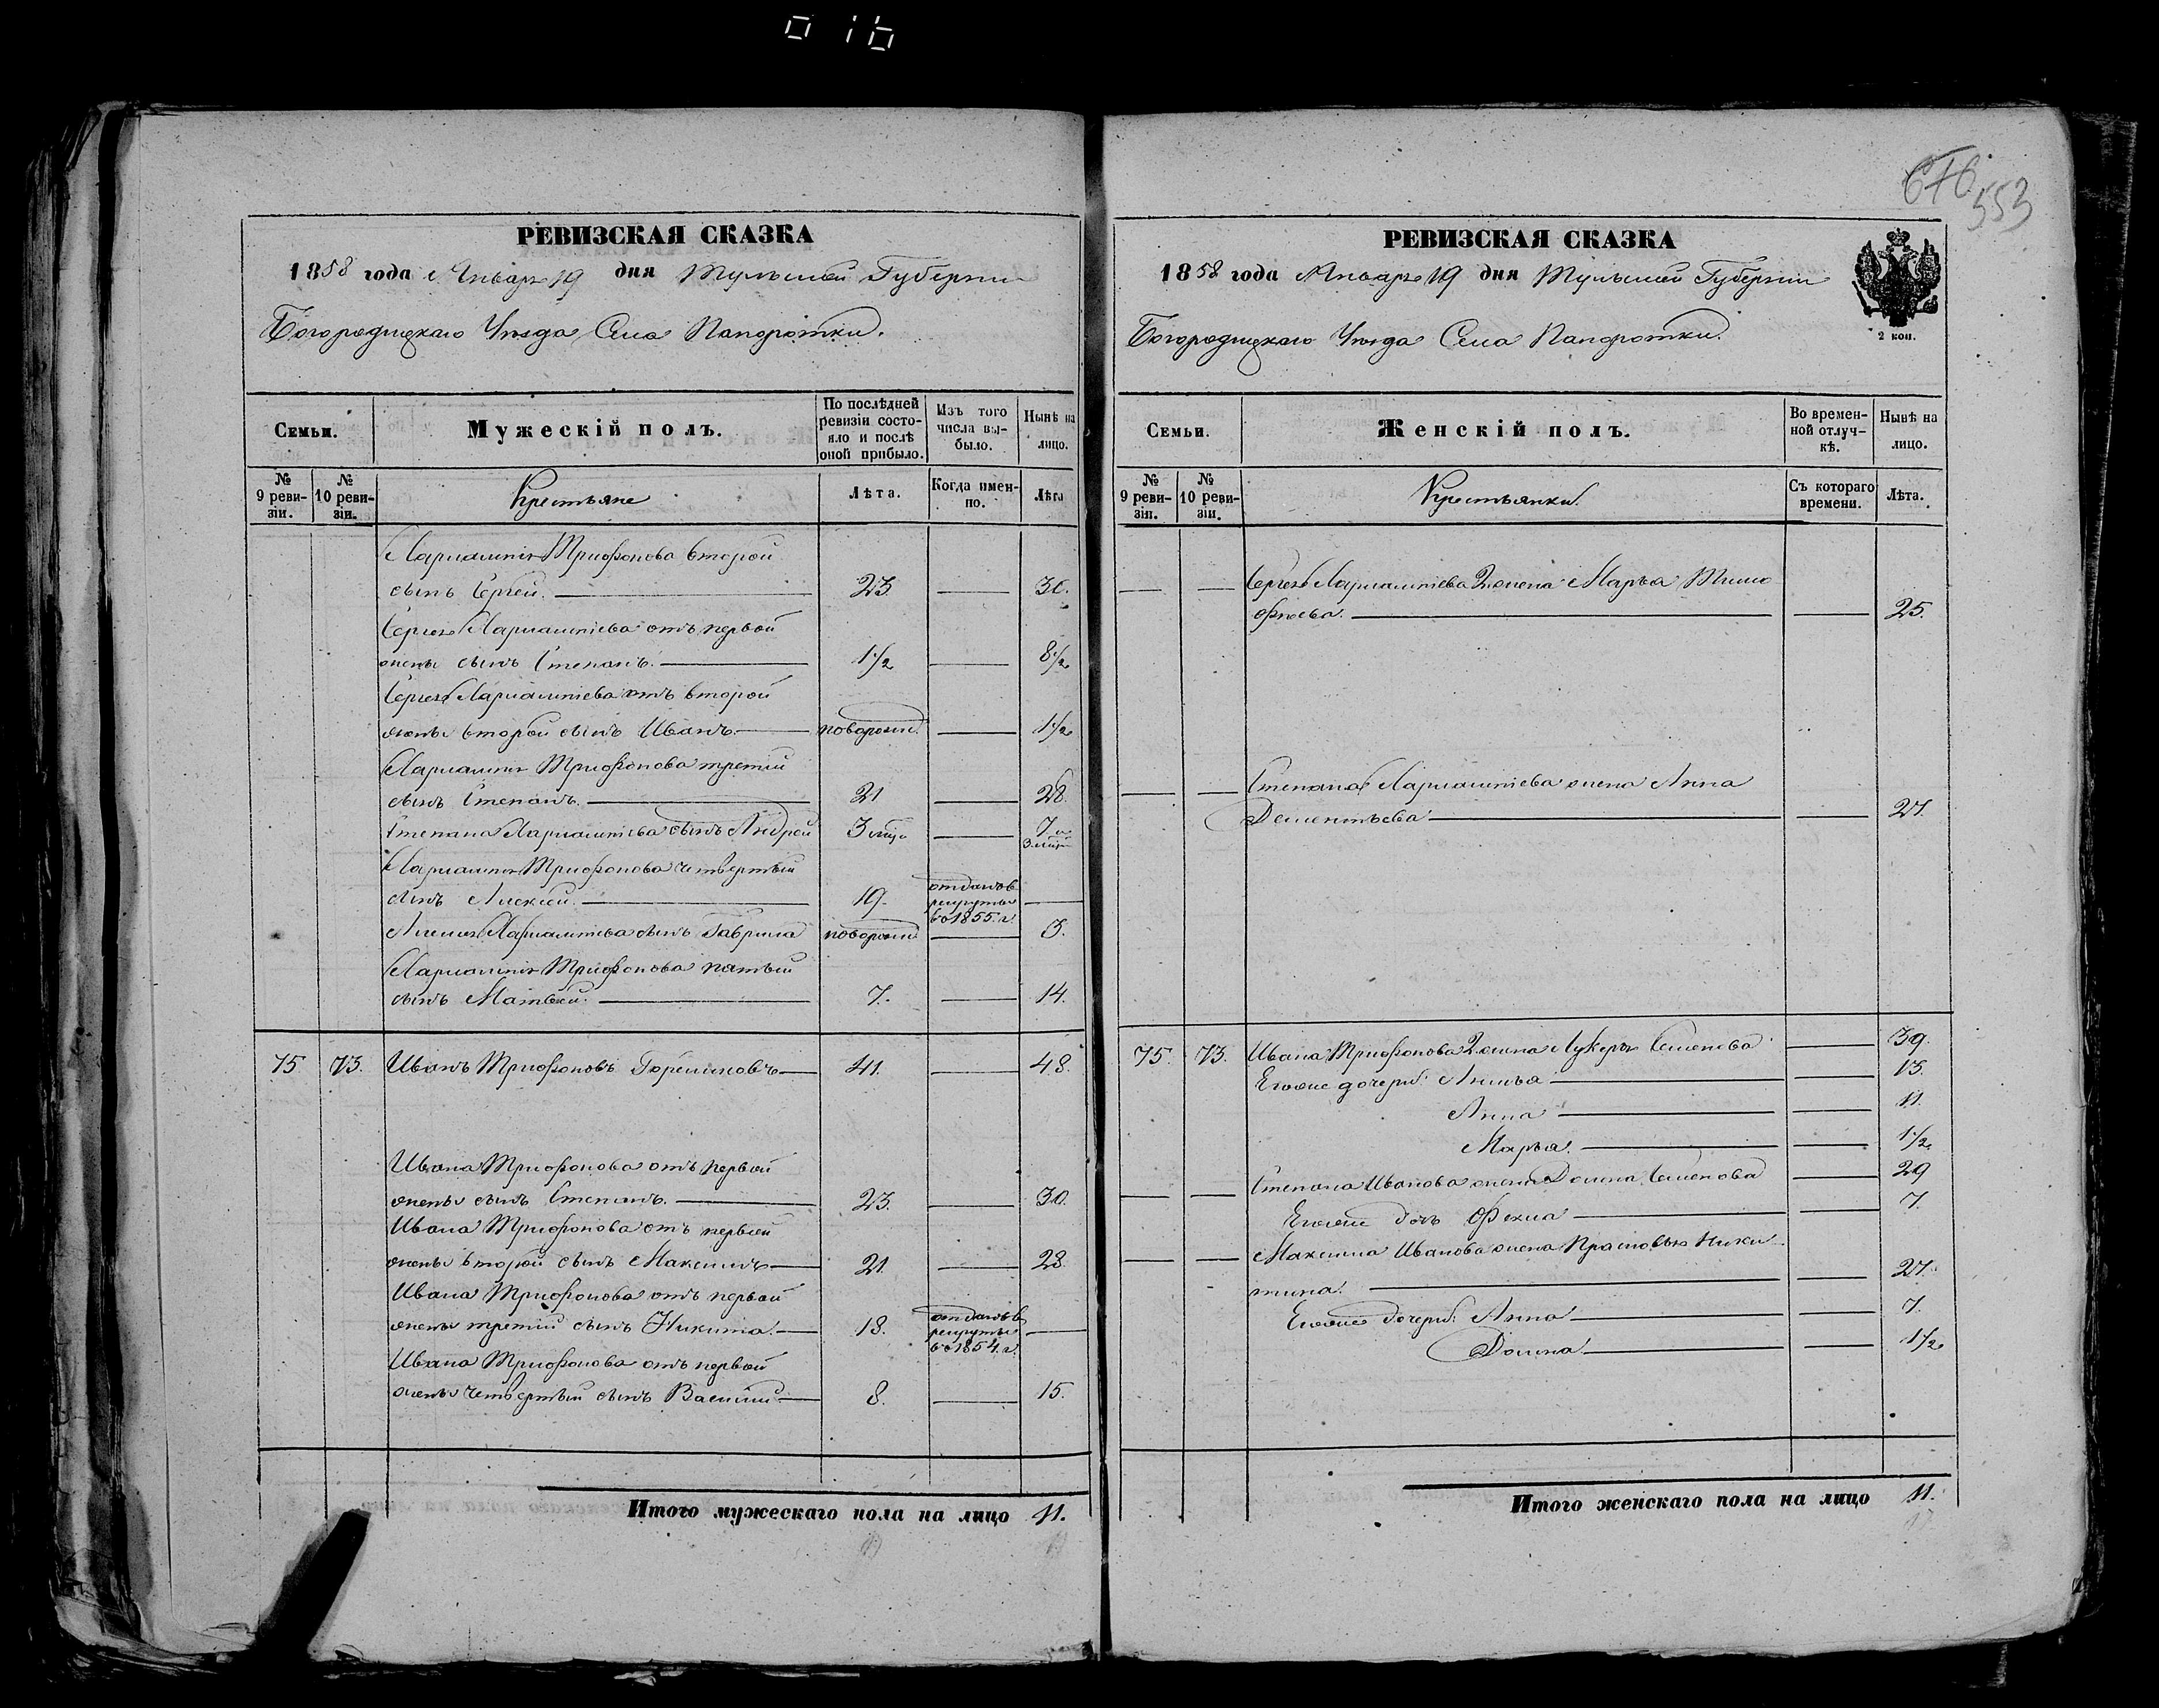 016
676
553
РЕВИЗСКАЯ СКАЗКА
1858 года Января 19 дня Тульской Губернии
Богородицкаго Уѣзда Села Папоротки.
Семьи.
Мужескій полъ.
По послѣдней ревизіи состояло и послѣ оной прибыло.
Изъ того числа выбыло.
Нынѣ на лицо.
№ 9 ревизіи.
№ 10 ревизіи.
Крестьяне
Лѣта.
Когда именно.
Лѣта
Харлампія Трифонова второй
сынъ Сергей. 23. 30.
Сергея Харлампіева отъ первой
жены сынъ Степанъ. 1½ 8½
Сергея Харлампіева отъ второй
жены второй сынъ Иванъ новорожд. 1½
Харлампія Трифонова третій
сынъ Степанъ. 21 28.
Степана Харлампіева сынъ Андрей 3 мѣс. 7 и 3 мѣс.
Харлампія Трифонова четвертый
сынъ Алексей. 19. отданъ в рекруты в 1855. г.
Алексея Харлампіева сынъ Гаврила новорожд. 3.
Харлампія Трифонова пятый
сынъ Матвей. 7. 14.
75 73. Иванъ Трифоновъ 41. 48.
Ивана Трифонова отъ первой
жены сынъ Степанъ. 23. 30.
Ивана Трифонова отъ первой
жены второй сынъ Максимъ 21. 28.
Ивана Трифонова отъ первой
жены третій сынъ Никита. 18. отданъ в рекруты в 1854. г.
Ивана Трифонова отъ первой
жены четвертый сынъ Василий 8. 15.
Итого мужескаго пола на лицо 11.
РЕВИЗСКАЯ СКАЗКА
1858 года Января 19 дня Тульской Губернии
Богородицкаго Уѣзда Села Папоротки.
2 коп.
Семьи.
Женскій полъ.
Во временной отлучкѣ.
Нынѣ на лицо.
№ 9 ревизіи.
№ 10 ревизіи.
Крестьянки.
Съ котораго времени.
Лѣта.
Сергея Харлампіева 2 жена Марья Тимо
феева. 25.
Степана Харлампіева жена Анна
Дементьева 27.
75. 73. Ивана Трифонова 2 жена Лукерья Семенова 39.
Его же дочери: Акинья 13.
Анна 11.
Марья. 1½
Степана Иванова жена Домна Семенова 29
Его же дочь Фекла 7.
Максима Иванова жена Прасковья Ники
тина. 27.
Его же дочери: Анна 7.
Домна 1½
Итого женскаго пола на лицо 11.